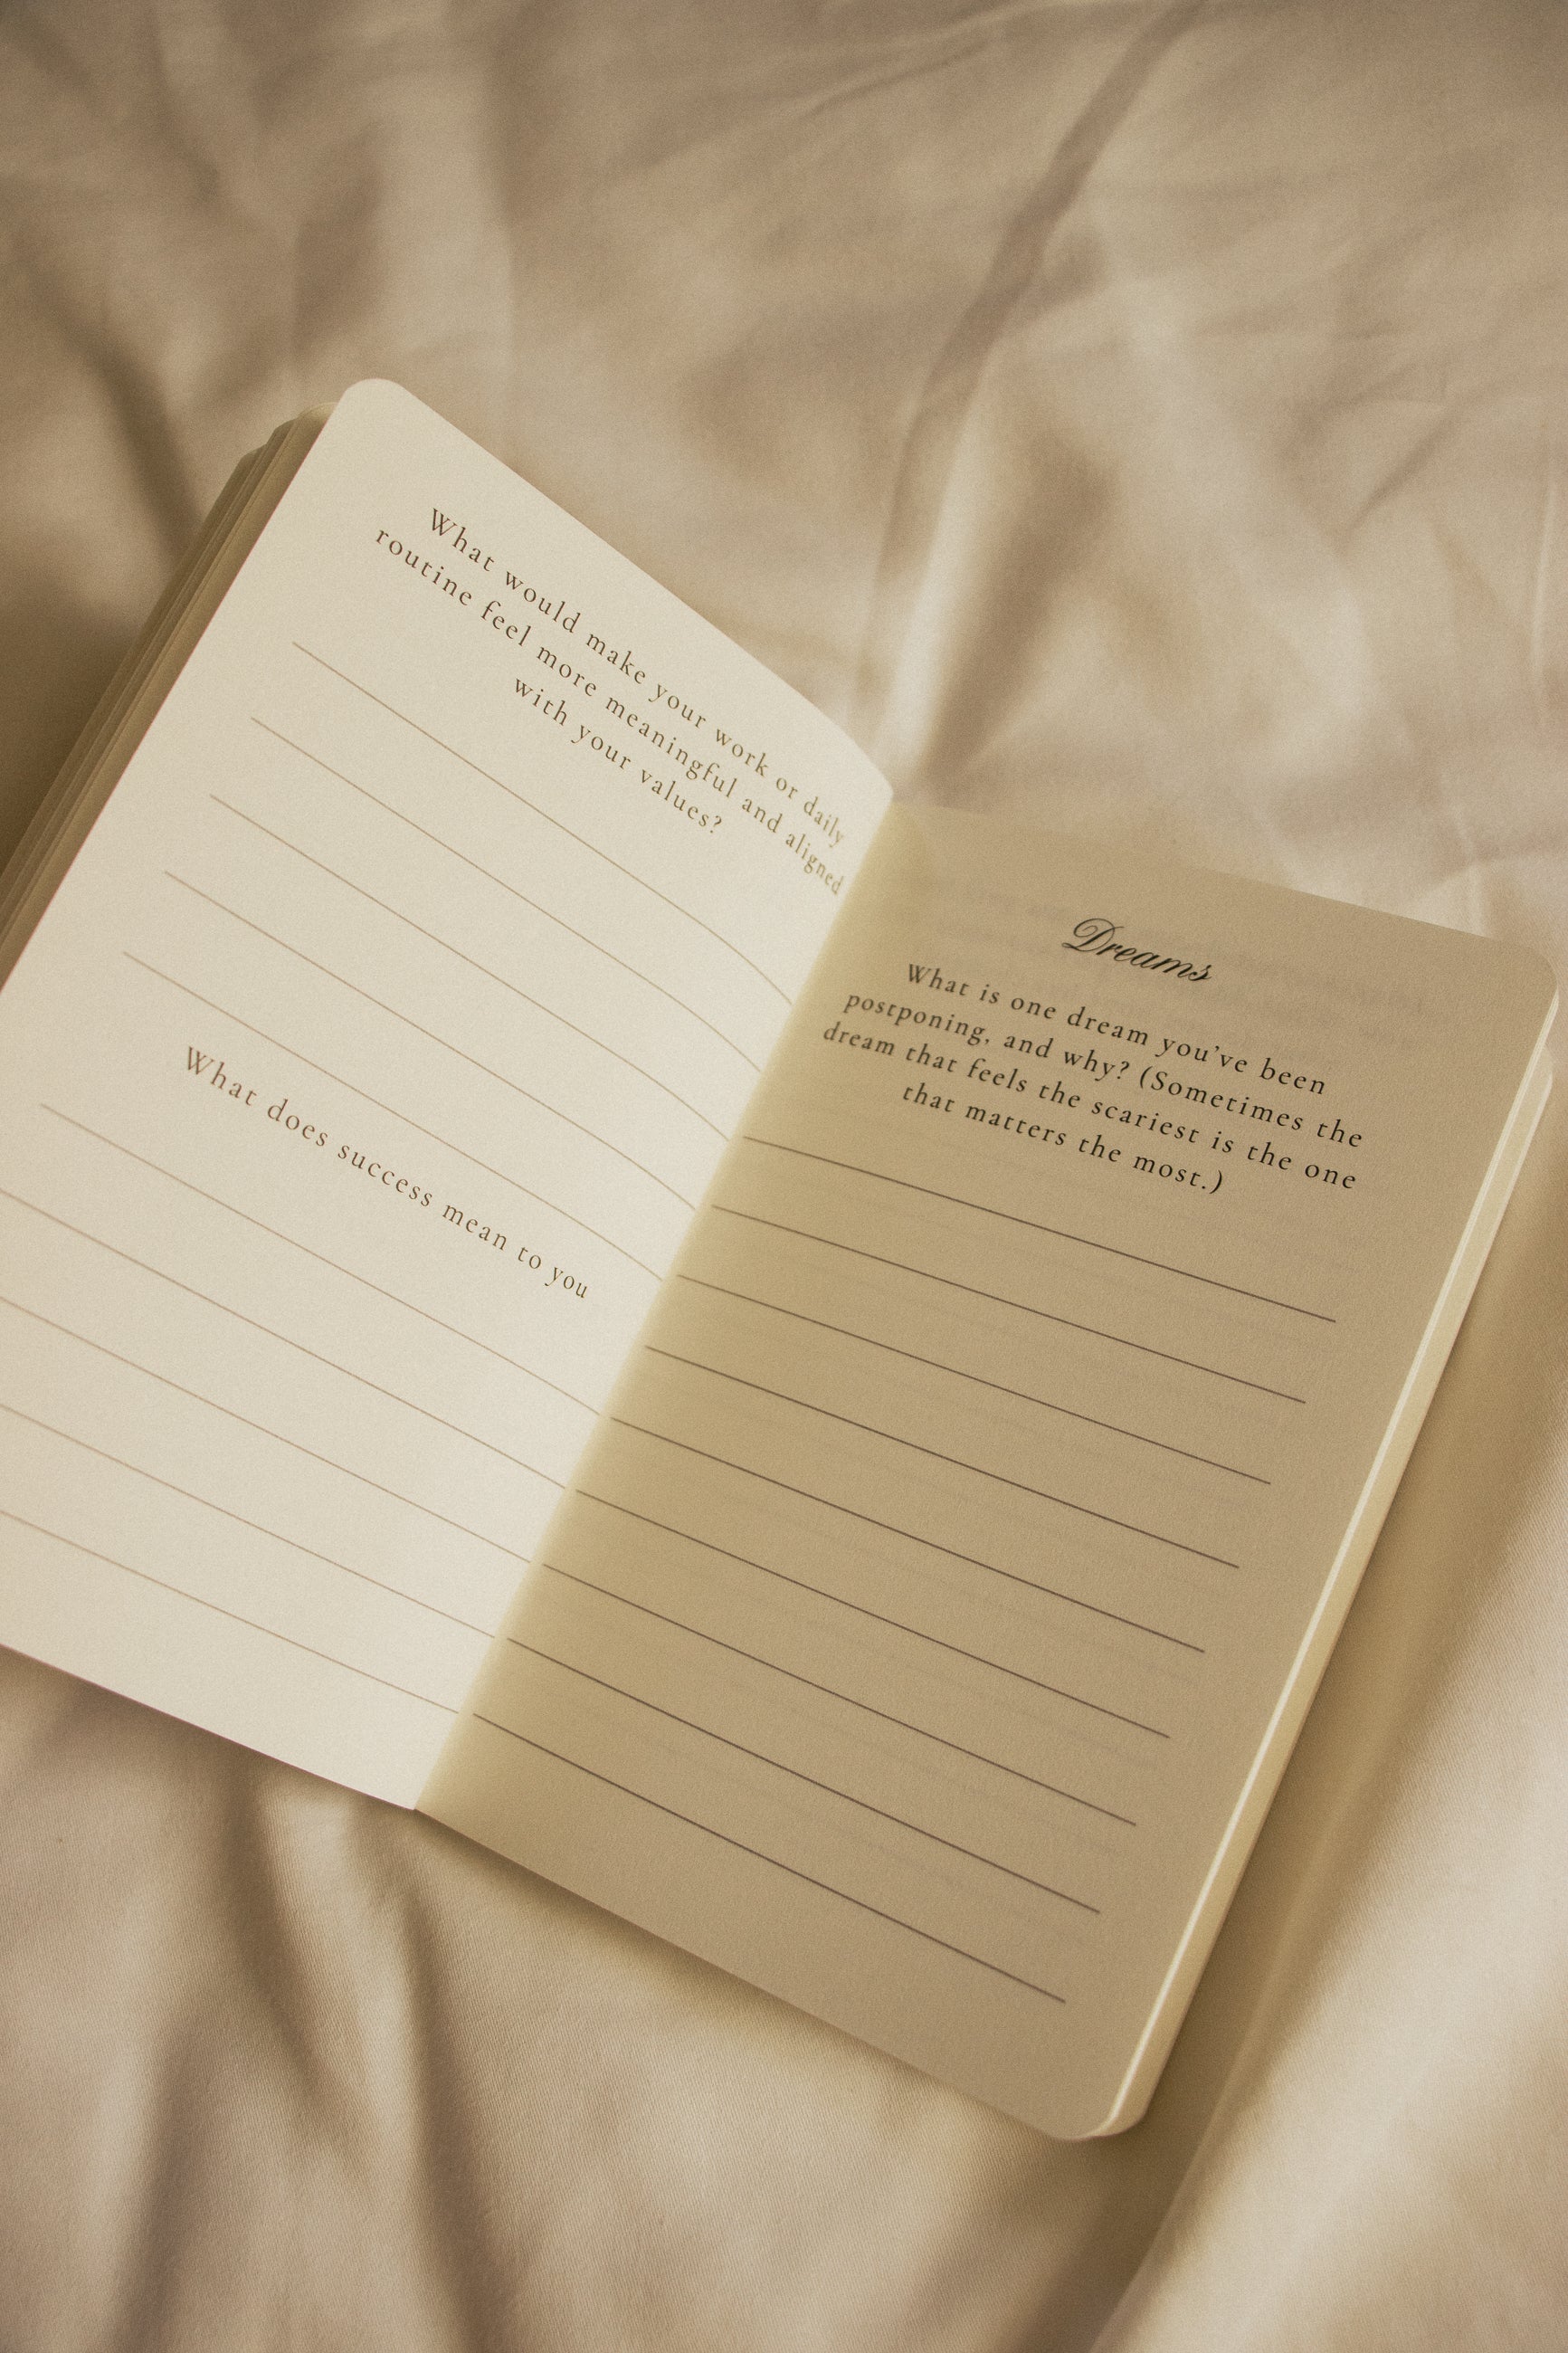 What would make your work or daily
routine feel more meaningful and aligned
with your values?
What does success mean to you
Dreams
What is one dream you've been
postponing, and why? (Sometimes the
dream that feels the scariest is the one
that matters the most.)